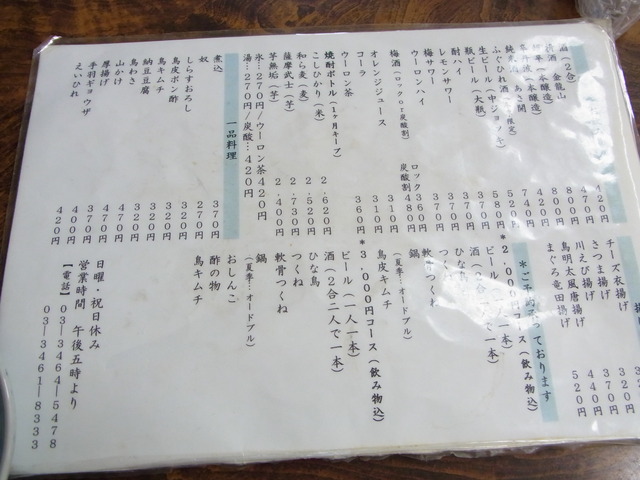 酒（２合） ４２０円
清酒 金龍山 ４７０円
８００円
８００円
４２０円
７４０円
ふぐひれ酒 ５２０円
生ビール（中ジョッキ） ５８０円
瓶ビール（大瓶） ５７０円
酎ハイ ３７０円
レモンサワー ３７０円
梅サワー ３７０円
ウーロンハイ ３７０円
梅酒（ロックor炭酸割） ロック ３６０円 炭酸割 ４８０円
オレンジジュース ３１０円
コーラ ３１０円
ウーロン茶 ３６０円
焼酎ボトル（1ヶ月キープ）
こしひかり（米） ２．６２０円
和ら麦（麦） ２．５２０円
薩摩武士（芋） ２．７３０円
芋無垢（芋） ２．４００円
氷…２７０円／ウーロン茶４２０円
湯…２７０円／炭酸…４２０円
一品料理
煮込 ３７０円
奴 ２７０円
しらすおろし ３２０円
鳥皮ポン酢 ３２０円
鳥キムチ ３２０円
納豆豆腐 ３２０円
鳥わさ ４７０円
山かけ ４７０円
厚揚げ ３７０円
手羽ギョウザ ４４０円
えいひれ ４２０円
チーズ衣揚げ ３２０円
さつま揚げ ３７０円
川えび揚げ ４４０円
鳥明太風唐揚げ ５２０円
まぐろ竜田揚げ
＊２．０００円コース（飲み物込）
ビール（一人一本）
酒（２合二人で一本）
ひな鳥
軟骨つくね
鍋
（夏季…オードブル）
鳥皮キムチ
＊３，０００円コース（飲み物込）
ビール（一人一本）
酒（２合二人で一本）
ひな鳥
つくね
軟骨つくね
鍋
（夏季…オードブル）
おしんこ
酢の物
鳥キムチ
日曜・祝日休み
営業時間 午後五時より
【電話】０３―３４６４―５４７８
０３―３４６１―８３３３